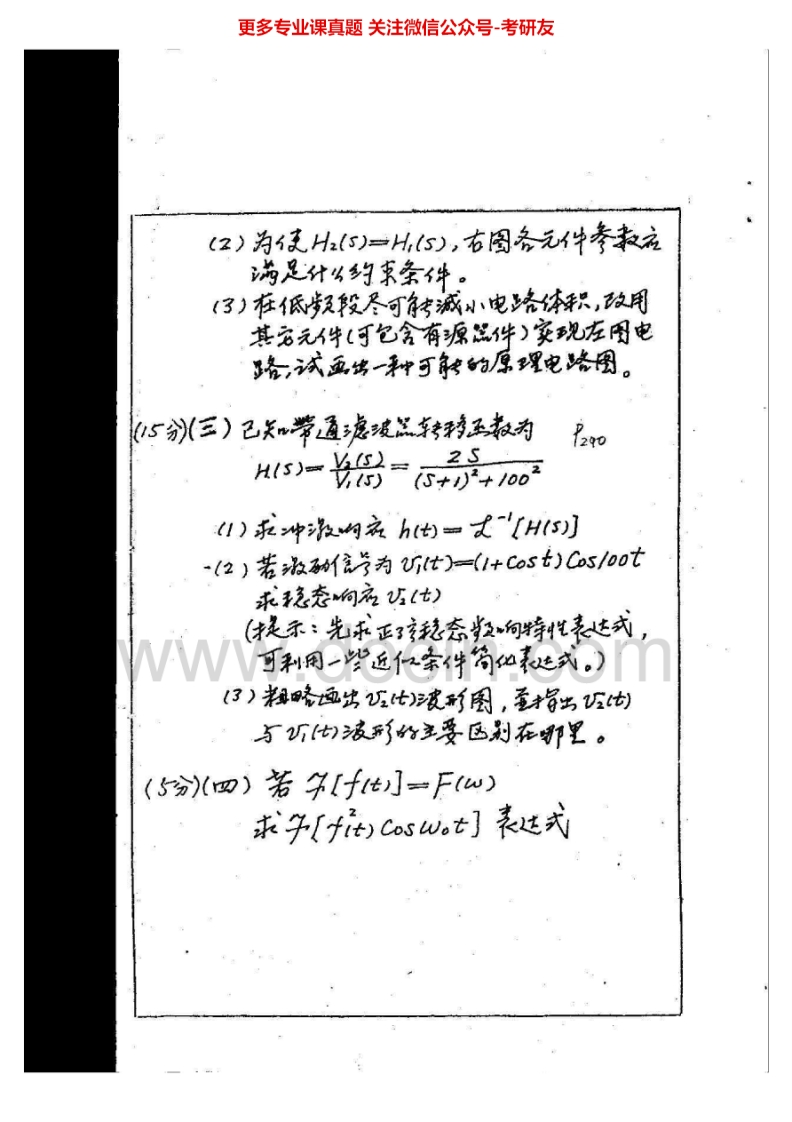 更多专业课真题 关注微信公众号-考研友
(2)为使H₂(s)=H₁(s),右图各元件参数应
满足什么约束条件。
(3)在低频段尽可能减小电路体积,改用
其它元件(可包含有源器件)实现左图电
路,试画出一种可能的原理电路图。
(15分)(三)已知带通滤波器转移函数为 P290
H(s)=V₂(s)/V₁(s)=2S/((S+1)²+100²)
(1)求冲激响应 h(t)=ℒ⁻¹[H(s)]
-(2)若激励信号为 v₁(t)=(1+Cost)Cos100t
求稳态响应 v₂(t)
(提示:先求正弦稳态频响特性表达式,
可利用一些近似条件简化表达式。)
www.docin.com
(3)粗略画出v₂(t)波形图,并指出v₂(t)
与v₁(t)波形的主要区别在哪里。
(5分)(四)若 ℱ[f(t)]=F(ω)
求ℱ[f²(t)Cosω₀t]表达式